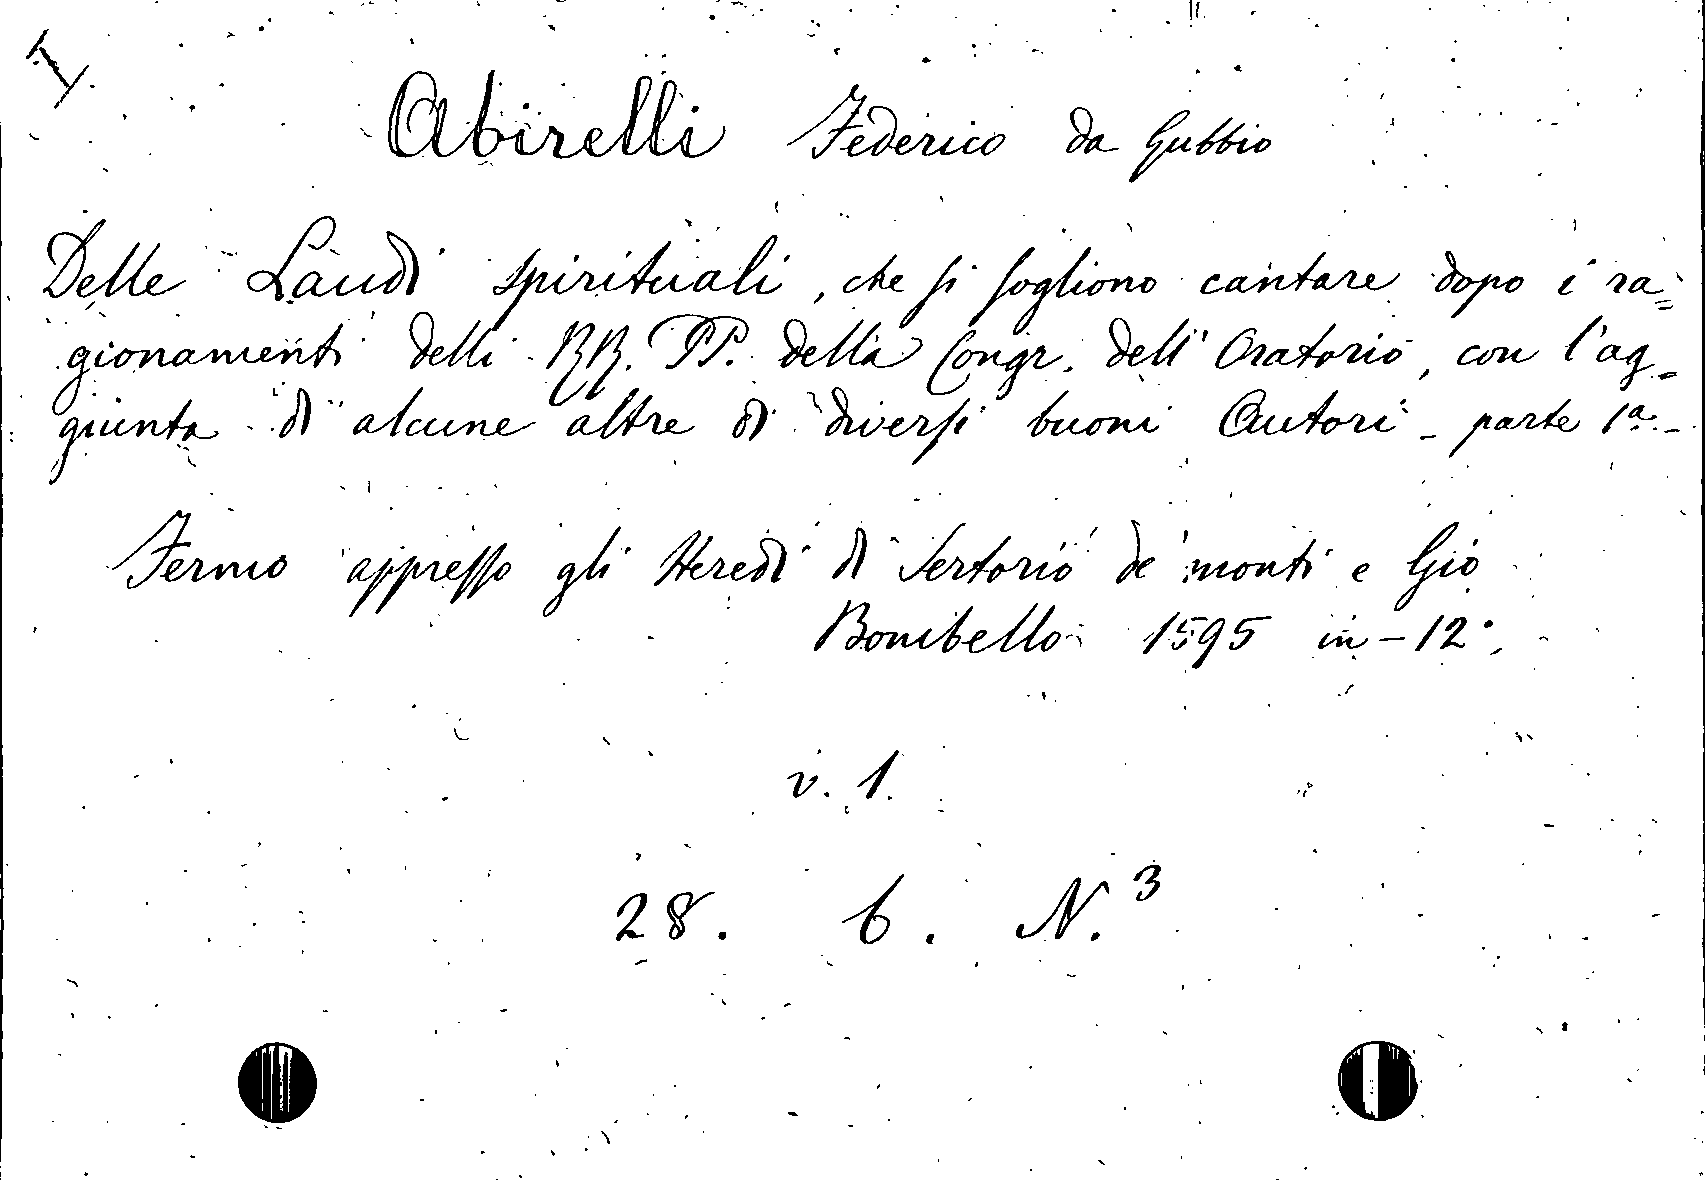 I
Abirelli Federico da Gubbio
Delle Laudi spirituali, che si sogliono cantare dopo i ra=
gionamenti delli RR. PP. della Congr. dell' Oratorio, con l'ag-
giunta di alcune altre di diversi buoni Autori - parte 1ª. -
Fermo appresso gli Heredi di Sertorio de' monti e Gio
Bonibello 1595 in-12°.
v. 1.
28. 6. N.3